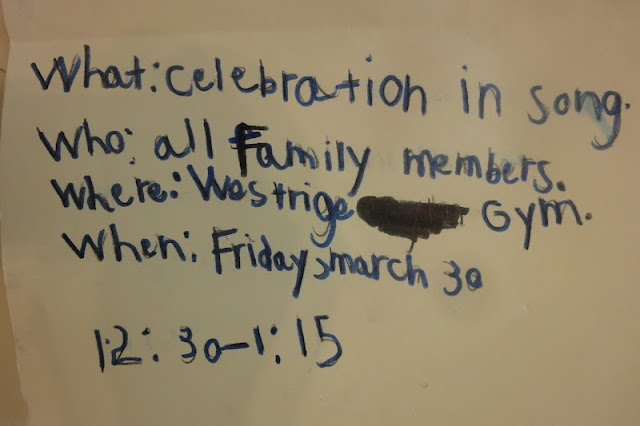 What: celebration in song.
Who: all Family members.
Where: Westrige Gym.
When: Friday, march 30
12:30-1:15